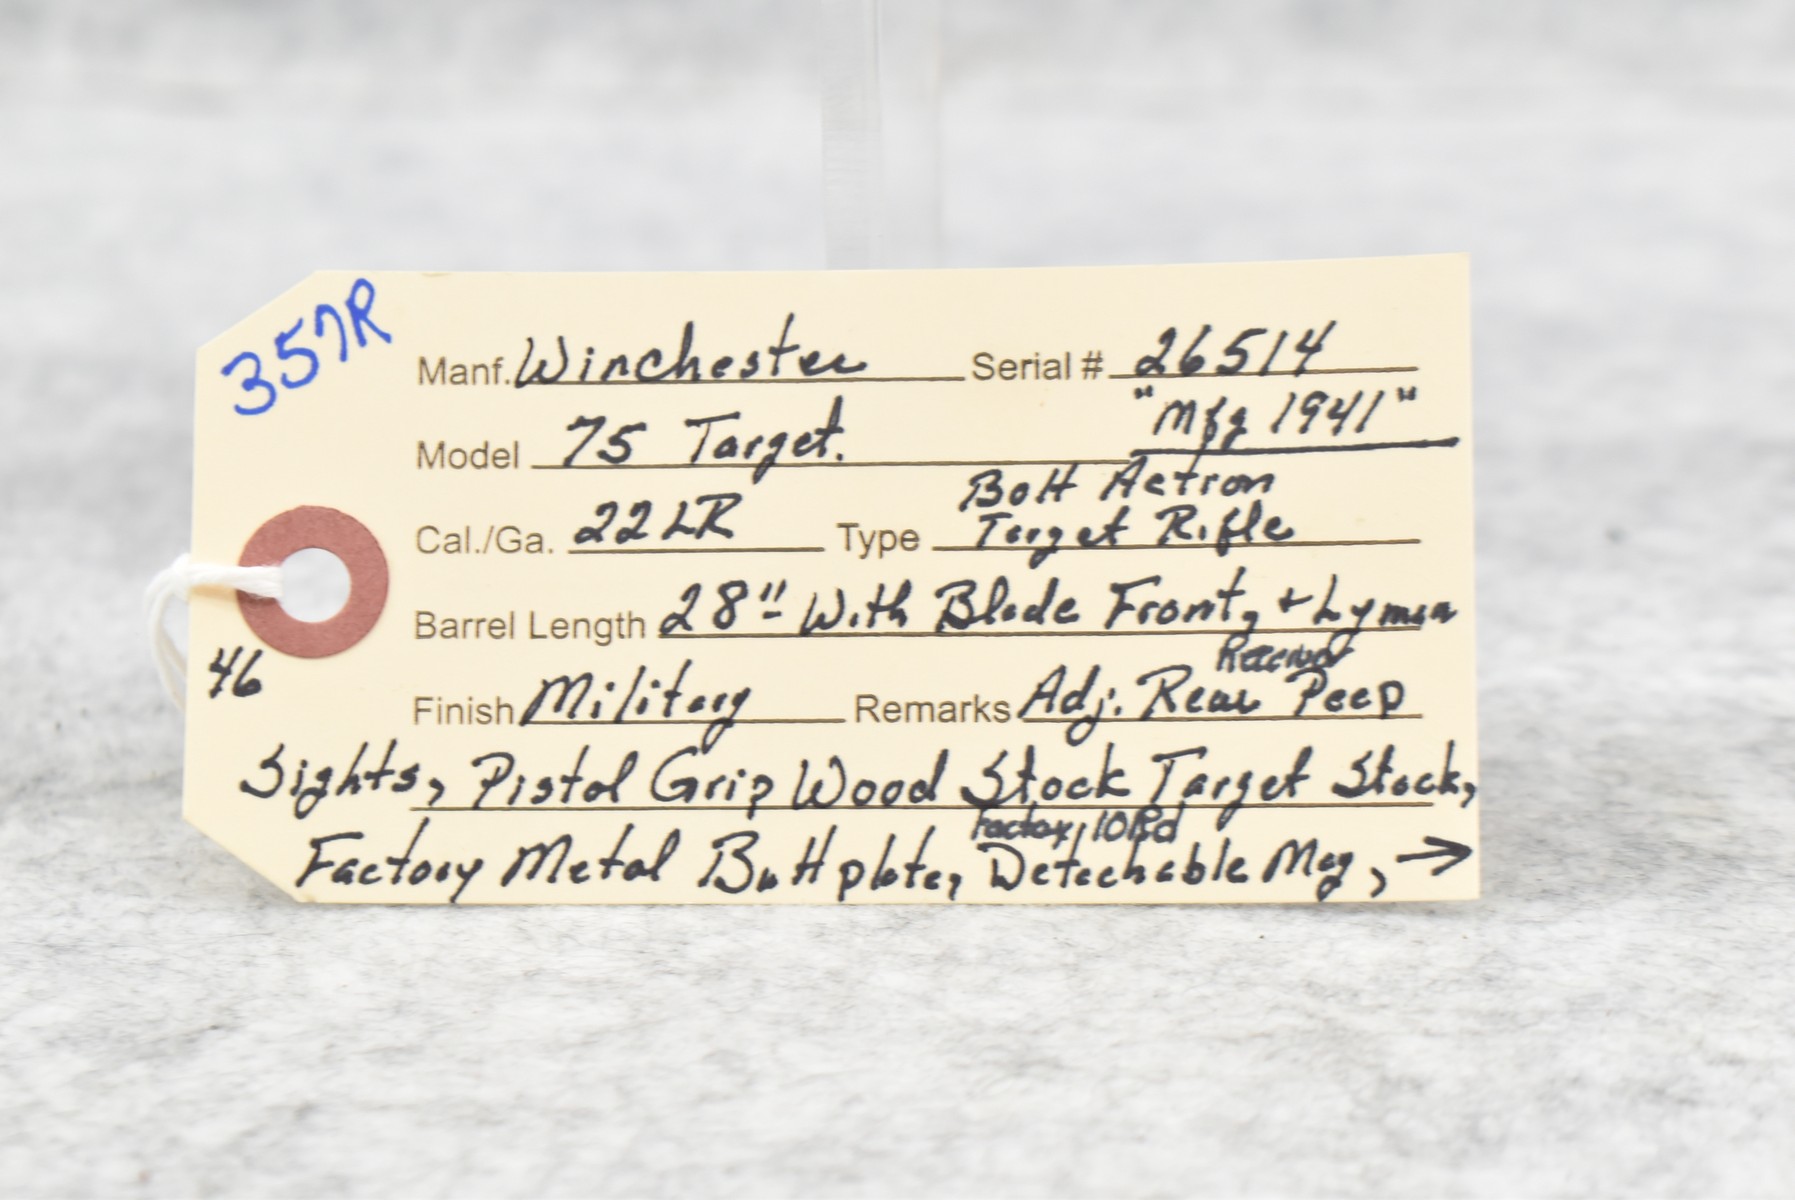 357R
Manf. Winchester Serial # 26514
"Mfg 1941"
Model 75 Target.
Bolt Action
Cal./Ga. 22 LR Type Target Rifle
Barrel Length 28" With Blade Front, + Lyman
Receiver
46
Finish Military Remarks Adj. Rear Peep
Sights, Pistol Grip Wood Stock Target Stock,
Factory 10Rd
Factory Metal Buttplate, Detachable Mag, →